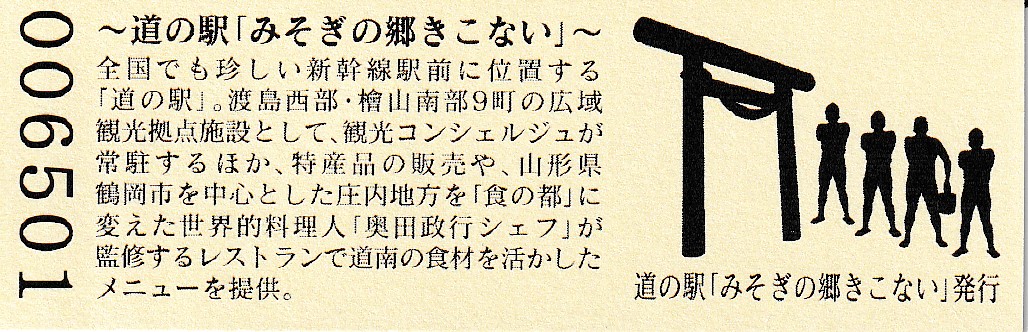 006501
～道の駅「みそぎの郷きこない」～
全国でも珍しい新幹線駅前に位置する
「道の駅」。渡島西部・檜山南部9町の広域
観光拠点施設として、観光コンシェルジュが
常駐するほか、特産品の販売や、山形県
鶴岡市を中心とした庄内地方を「食の都」に
変えた世界的料理人「奥田政行シェフ」が
監修するレストランで道南の食材を活かした
メニューを提供。
道の駅「みそぎの郷きこない」発行